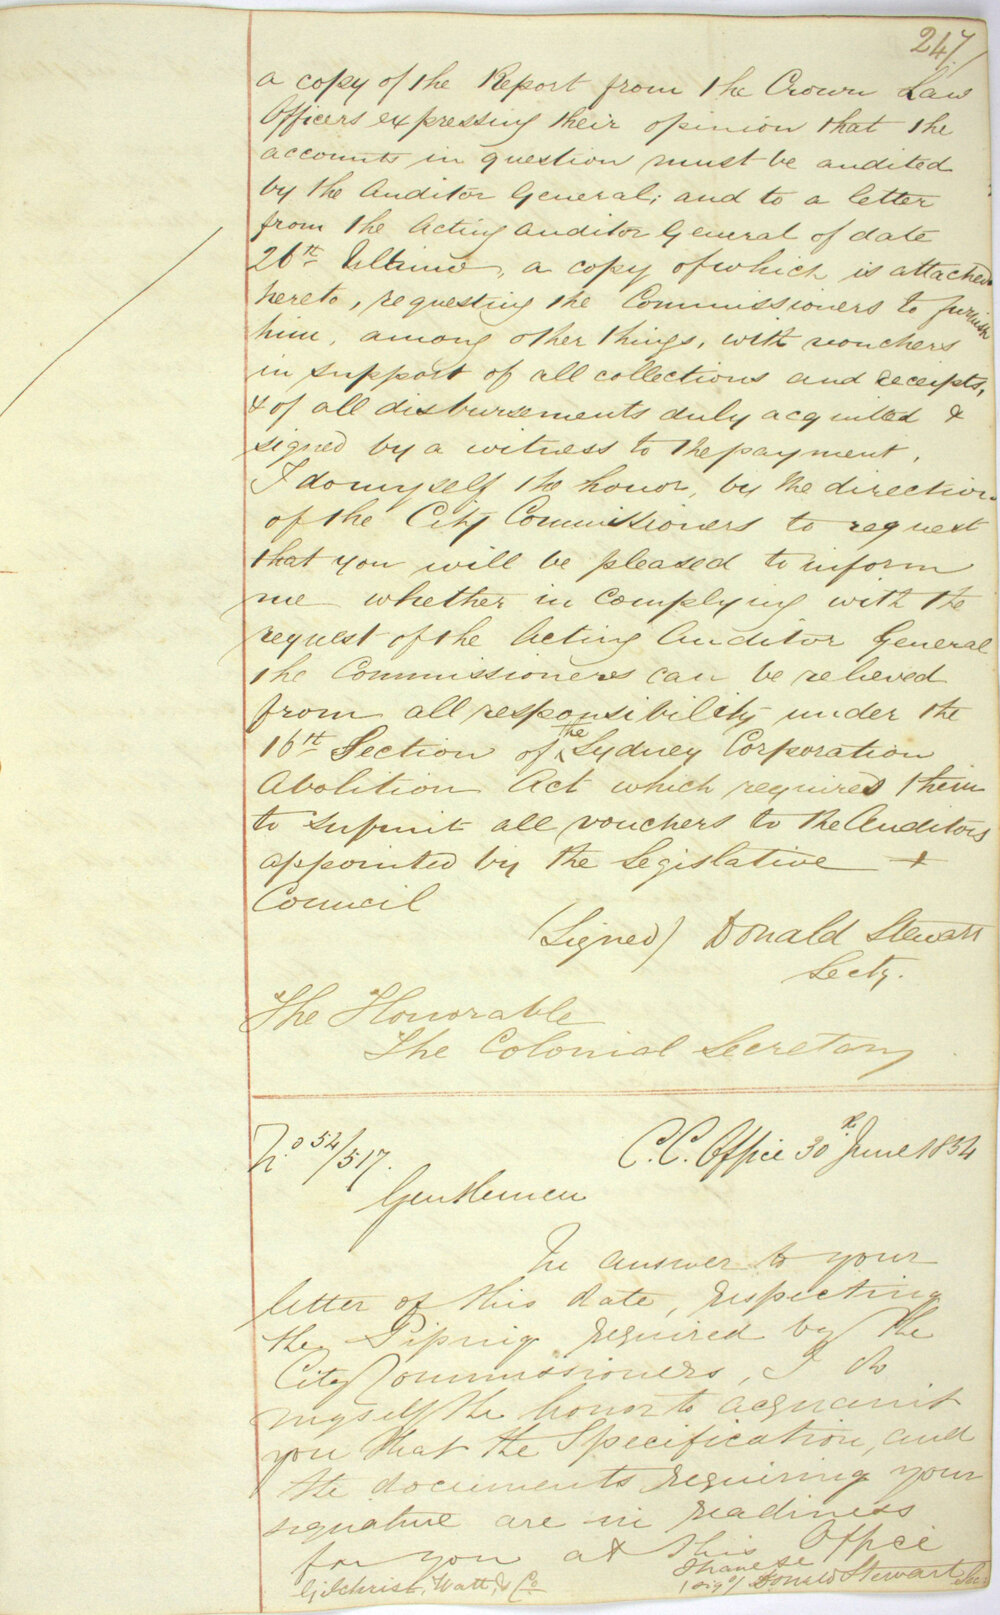 247
a copy of the Report from the Crown Law
Officers expressing their opinion that the
accounts in question must be audited
by the Auditor General; and to a letter
from the Acting Auditor General of date
26th Ultimo, a copy of which is attached
hereto, requesting the Commissioners to furnish
him, among other things, with vouchers
in support of all collections and receipts,
& of all disbursements duly acquitted &
signed by a witness to the payment.
I do myself the honor, by the direction
of the City Commissioners to request
that you will be pleased to inform
me whether in complying with the
request of the Acting Auditor General
the Commissioners can be relieved
from all responsibility under the
16th Section of the Sydney Corporation
Abolition Act which requires them
to submit all vouchers to the Auditors
appointed by the Legislative
Council
(Signed) Donald Stewart
Secty.
The Honorable
The Colonial Secretary
No 54/517.
C.C. Office 30th June 1854
Gentlemen
In answer to your
letter of this date, respecting
the Piping required by the
City Commissioners, I do
myself the honor to acquaint
you that the Specification, and
the documents requiring your
signature are in readiness
for you at this Office
I have &c
Gilchrist, Watt, & Co
(sigd) Donald Stewart Sec